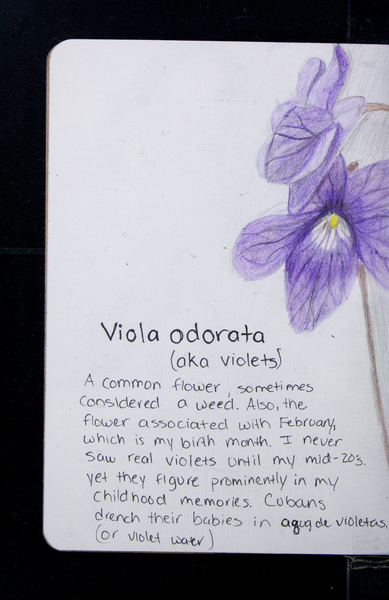 Viola odorata
(aka violets)
A common flower, sometimes
considered a weed. Also, the
flower associated with February,
which is my birth month. I never
saw real violets until my mid-20s.
yet they figure prominently in my
childhood memories. Cubans
drench their babies in agua de violetas.
(or violet water)